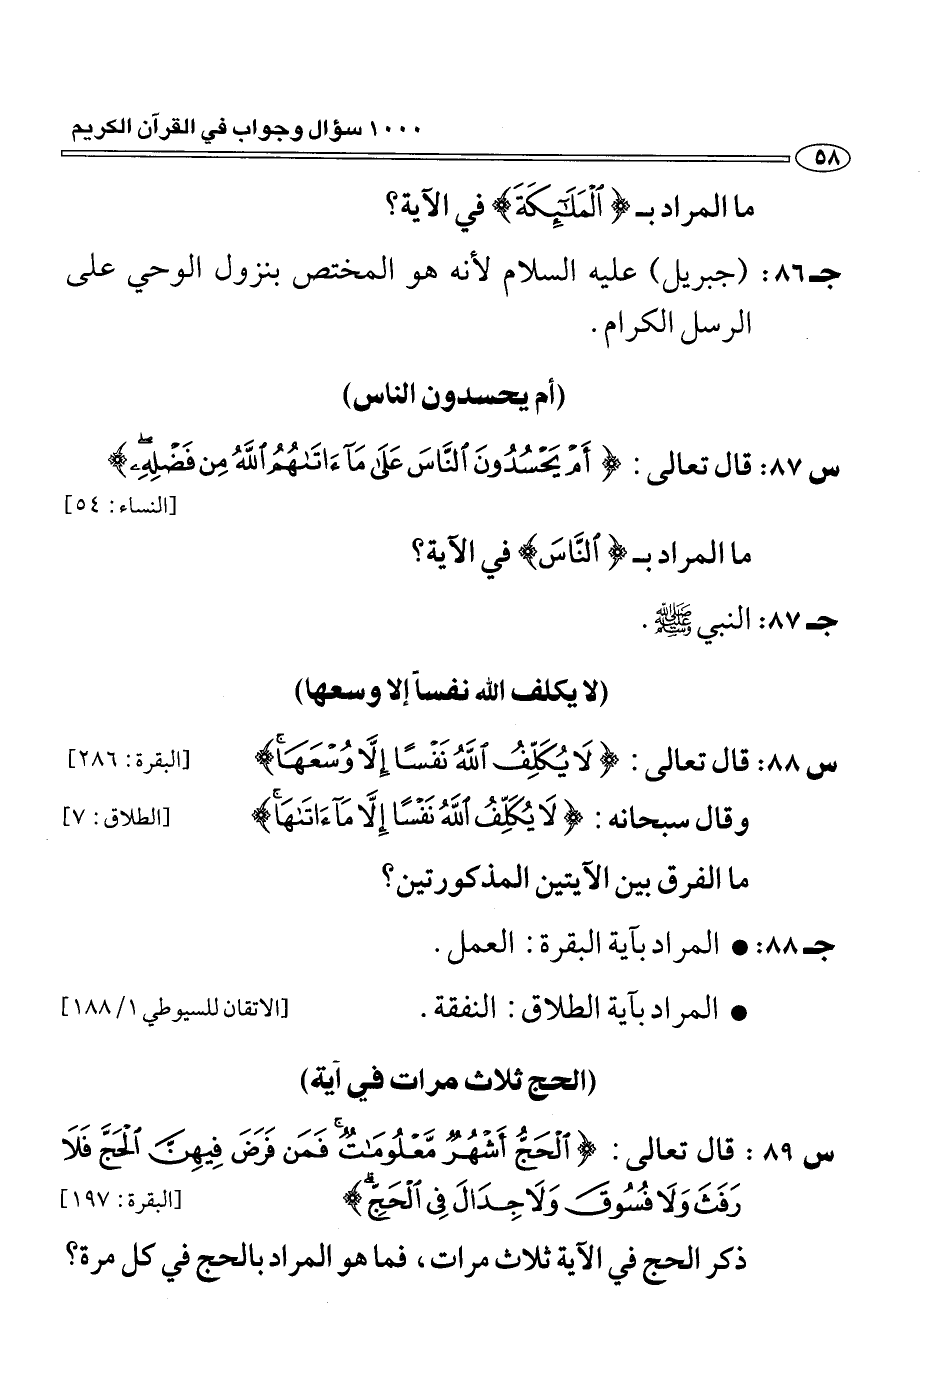 ١٠٠٠ سؤال وجواب في القرآن الكريم
٥٨
ما المراد بـ ﴿ ٱلْمَلَٰٓئِكَةَ ﴾ في الآية؟
جـ ٨٦: (جبريل) عليه السلام لأنه هو المختص بنزول الوحي على
الرسل الكرام .
(أم يحسدون الناس)
س ٨٧: قال تعالى : ﴿ أَمْ يَحْسُدُونَ ٱلنَّاسَ عَلَىٰ مَآ ءَاتَىٰهُمُ ٱللَّهُ مِن فَضْلِهِۦۖ ﴾
[النساء : ٥٤]
ما المراد بـ ﴿ ٱلنَّاسَ ﴾ في الآية؟
جـ ٨٧: النبي ﷺ .
(لا يكلف الله نفساً إلا وسعها)
س ٨٨: قال تعالى : ﴿ لَا يُكَلِّفُ ٱللَّهُ نَفْسًا إِلَّا وُسْعَهَاۚ ﴾ [البقرة : ٢٨٦]
وقال سبحانه : ﴿ لَا يُكَلِّفُ ٱللَّهُ نَفْسًا إِلَّا مَآ ءَاتَىٰهَاۚ ﴾ [الطلاق : ٧]
ما الفرق بين الآيتين المذكورتين؟
جـ ٨٨: ● المراد بآية البقرة : العمل .
● المراد بآية الطلاق : النفقة . [الاتقان للسيوطي ١/ ١٨٨]
(الحج ثلاث مرات في آية)
س ٨٩ : قال تعالى : ﴿ ٱلْحَجُّ أَشْهُرٌ مَّعْلُومَٰتٌۚ فَمَن فَرَضَ فِيهِنَّ ٱلْحَجَّ فَلَا
رَفَثَ وَلَا فُسُوقَ وَلَا جِدَالَ فِى ٱلْحَجِّۗ ﴾ [البقرة : ١٩٧]
ذكر الحج في الآية ثلاث مرات ، فما هو المراد بالحج في كل مرة؟